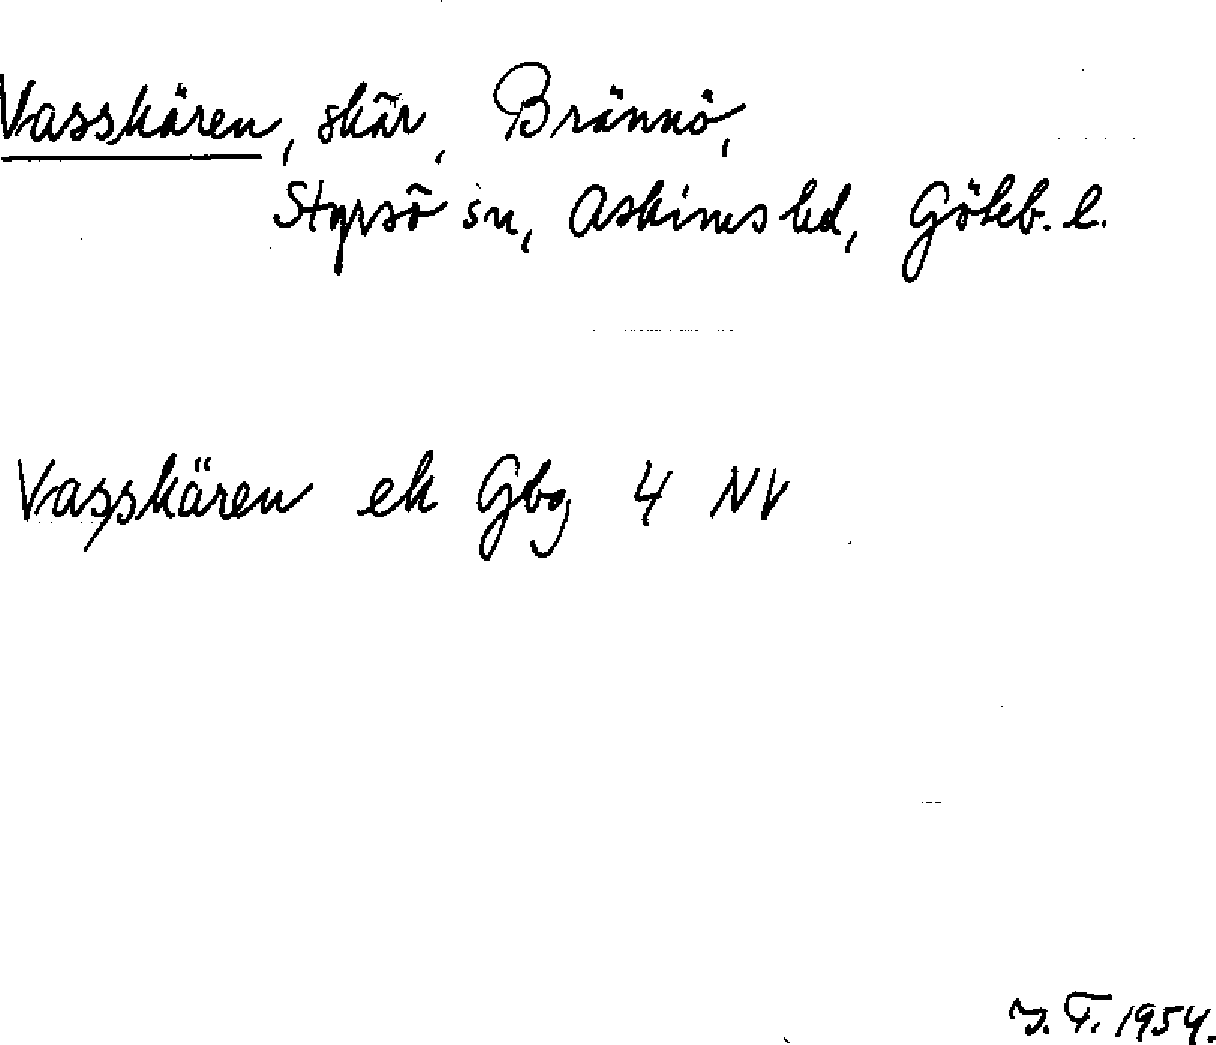 Vasskären, skär, Brännö,
Styrsö sn, Askims hd, Göteb. l.
Vasskären ek Gbg 4 NV
F. 1954.